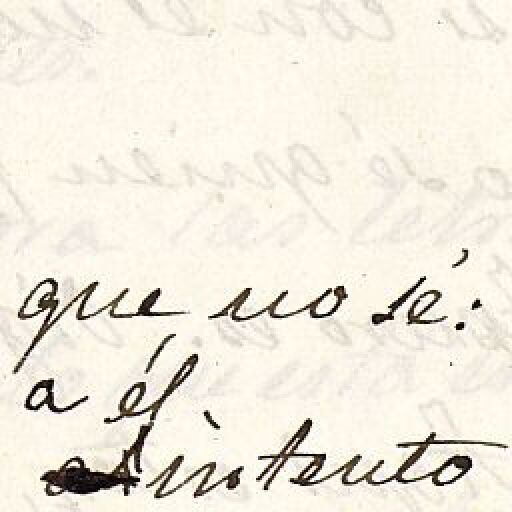 que no sé:
a él
intento